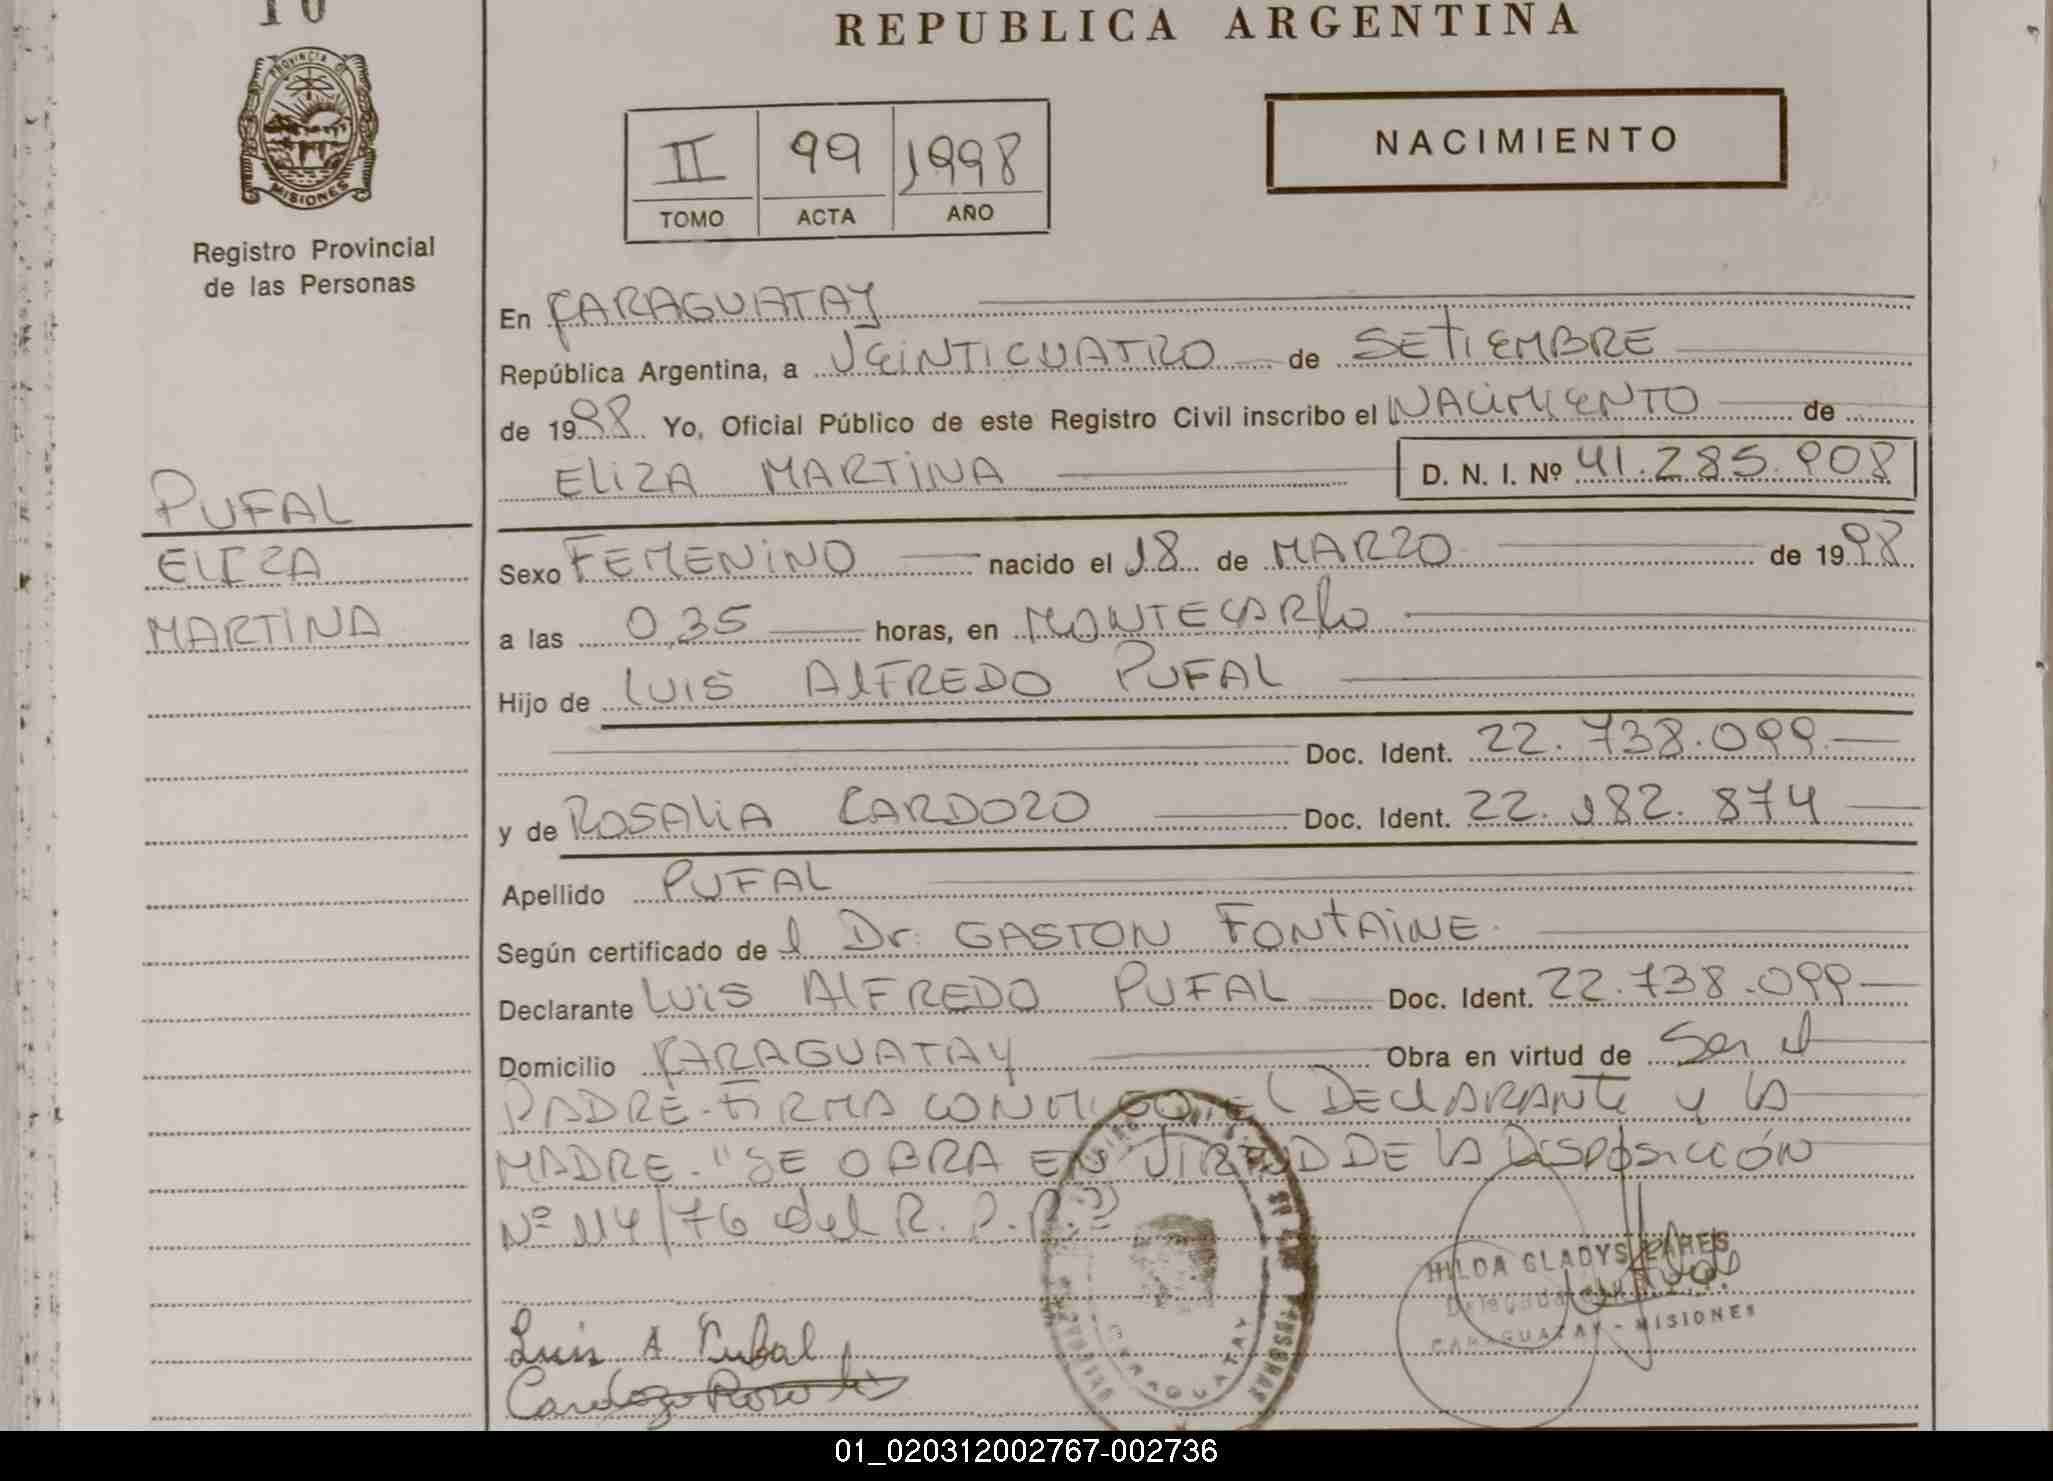 10
REPUBLICA ARGENTINA
PROVINCIA DE
MISIONES
Registro Provincial
de las Personas
II 99 1998
TOMO ACTA AÑO
NACIMIENTO
En CARAGUATAY
República Argentina, a VEINTICUATRO de SETIEMBRE
de 1998 Yo, Oficial Público de este Registro Civil inscribo el NACIMIENTO de
ELIZA MARTINA D. N. I. Nº 41.285.908
PUFAL
ELIZA
MARTINA
Sexo FEMENINO nacido el 18 de MARZO de 1998
a las 0,35 horas, en MONTECARlo
Hijo de LUIS AlFREDO PUFAL
Doc. Ident. 22.738.099
y de ROSALIA CARDOZO Doc. Ident. 22.182.874
Apellido PUFAL
Según certificado de l Dr. GASTON FONTAINE
Declarante LUIS AlFREDO PUFAL Doc. Ident. 22.738.099
Domicilio CARAGUATAY Obra en virtud de Ser el
PADRE-FIRMA CONMIGO EL DEClARANTE y LA
MADRE. "SE OBRA EN VIRTUD DE LA DISPOSICIÓN
Nº 114/76 del R. P. P."
HILDA GLADYS
Delegada
CARAGUATAY - MISIONES
Luis A Pufal
Cardozo Rosalia
CARAGUATAY
01_020312002767-002736